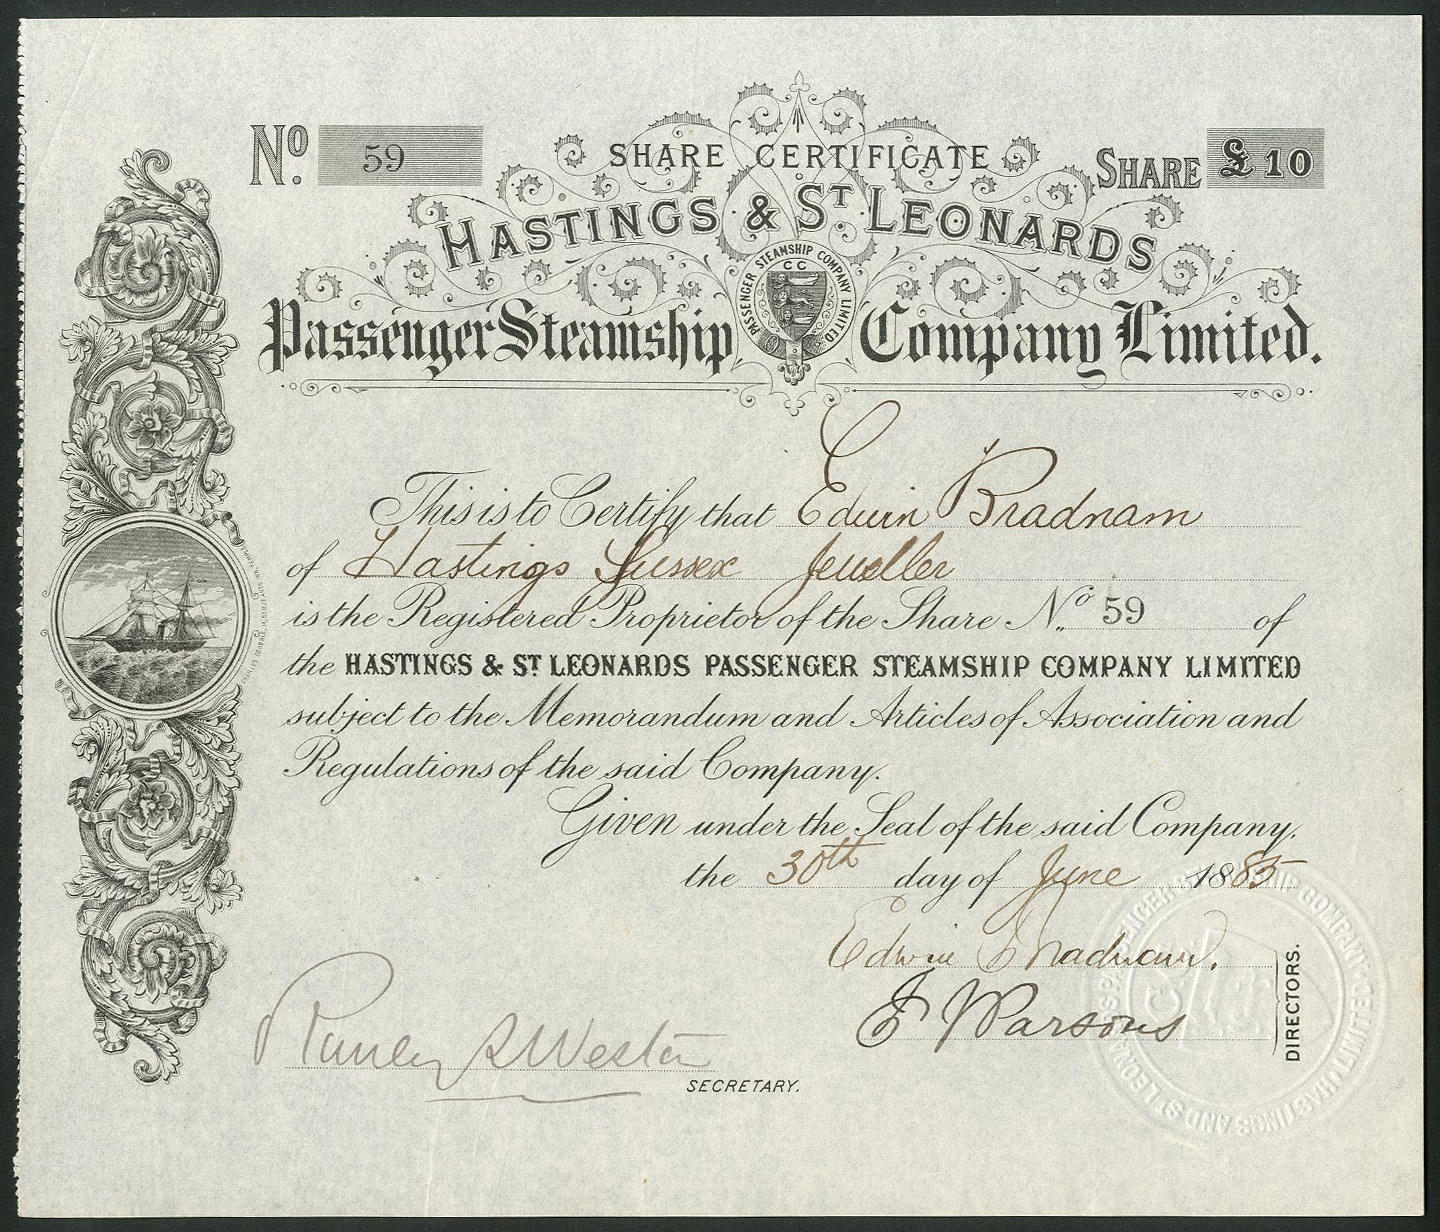 No. 59
SHARE CERTIFICATE
SHARE £10
HASTINGS & ST LEONARDS
PASSENGER STEAMSHIP COMPANY LIMITED
CC
Passenger Steamship Company Limited.
This is to Certify that Edwin Bradnam
of Hastings Sussex Jeweller
is the Registered Proprietor of the Share No. 59 of
the HASTINGS & ST LEONARDS PASSENGER STEAMSHIP COMPANY LIMITED
subject to the Memorandum and Articles of Association and
Regulations of the said Company.
Given under the Seal of the said Company.
the 30th day of June 1885
Edwin Bradnam.
J Parsons
DIRECTORS.
Weston
SECRETARY.
HASTINGS AND ST LEONARDS PASSENGER STEAMSHIP COMPANY LIMITED